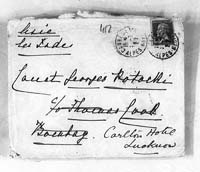 Asie
Les Indes
412
Count Georges Potocki
c/o Thomas Cook
Bombay
Carlton Hotel
Lucknow